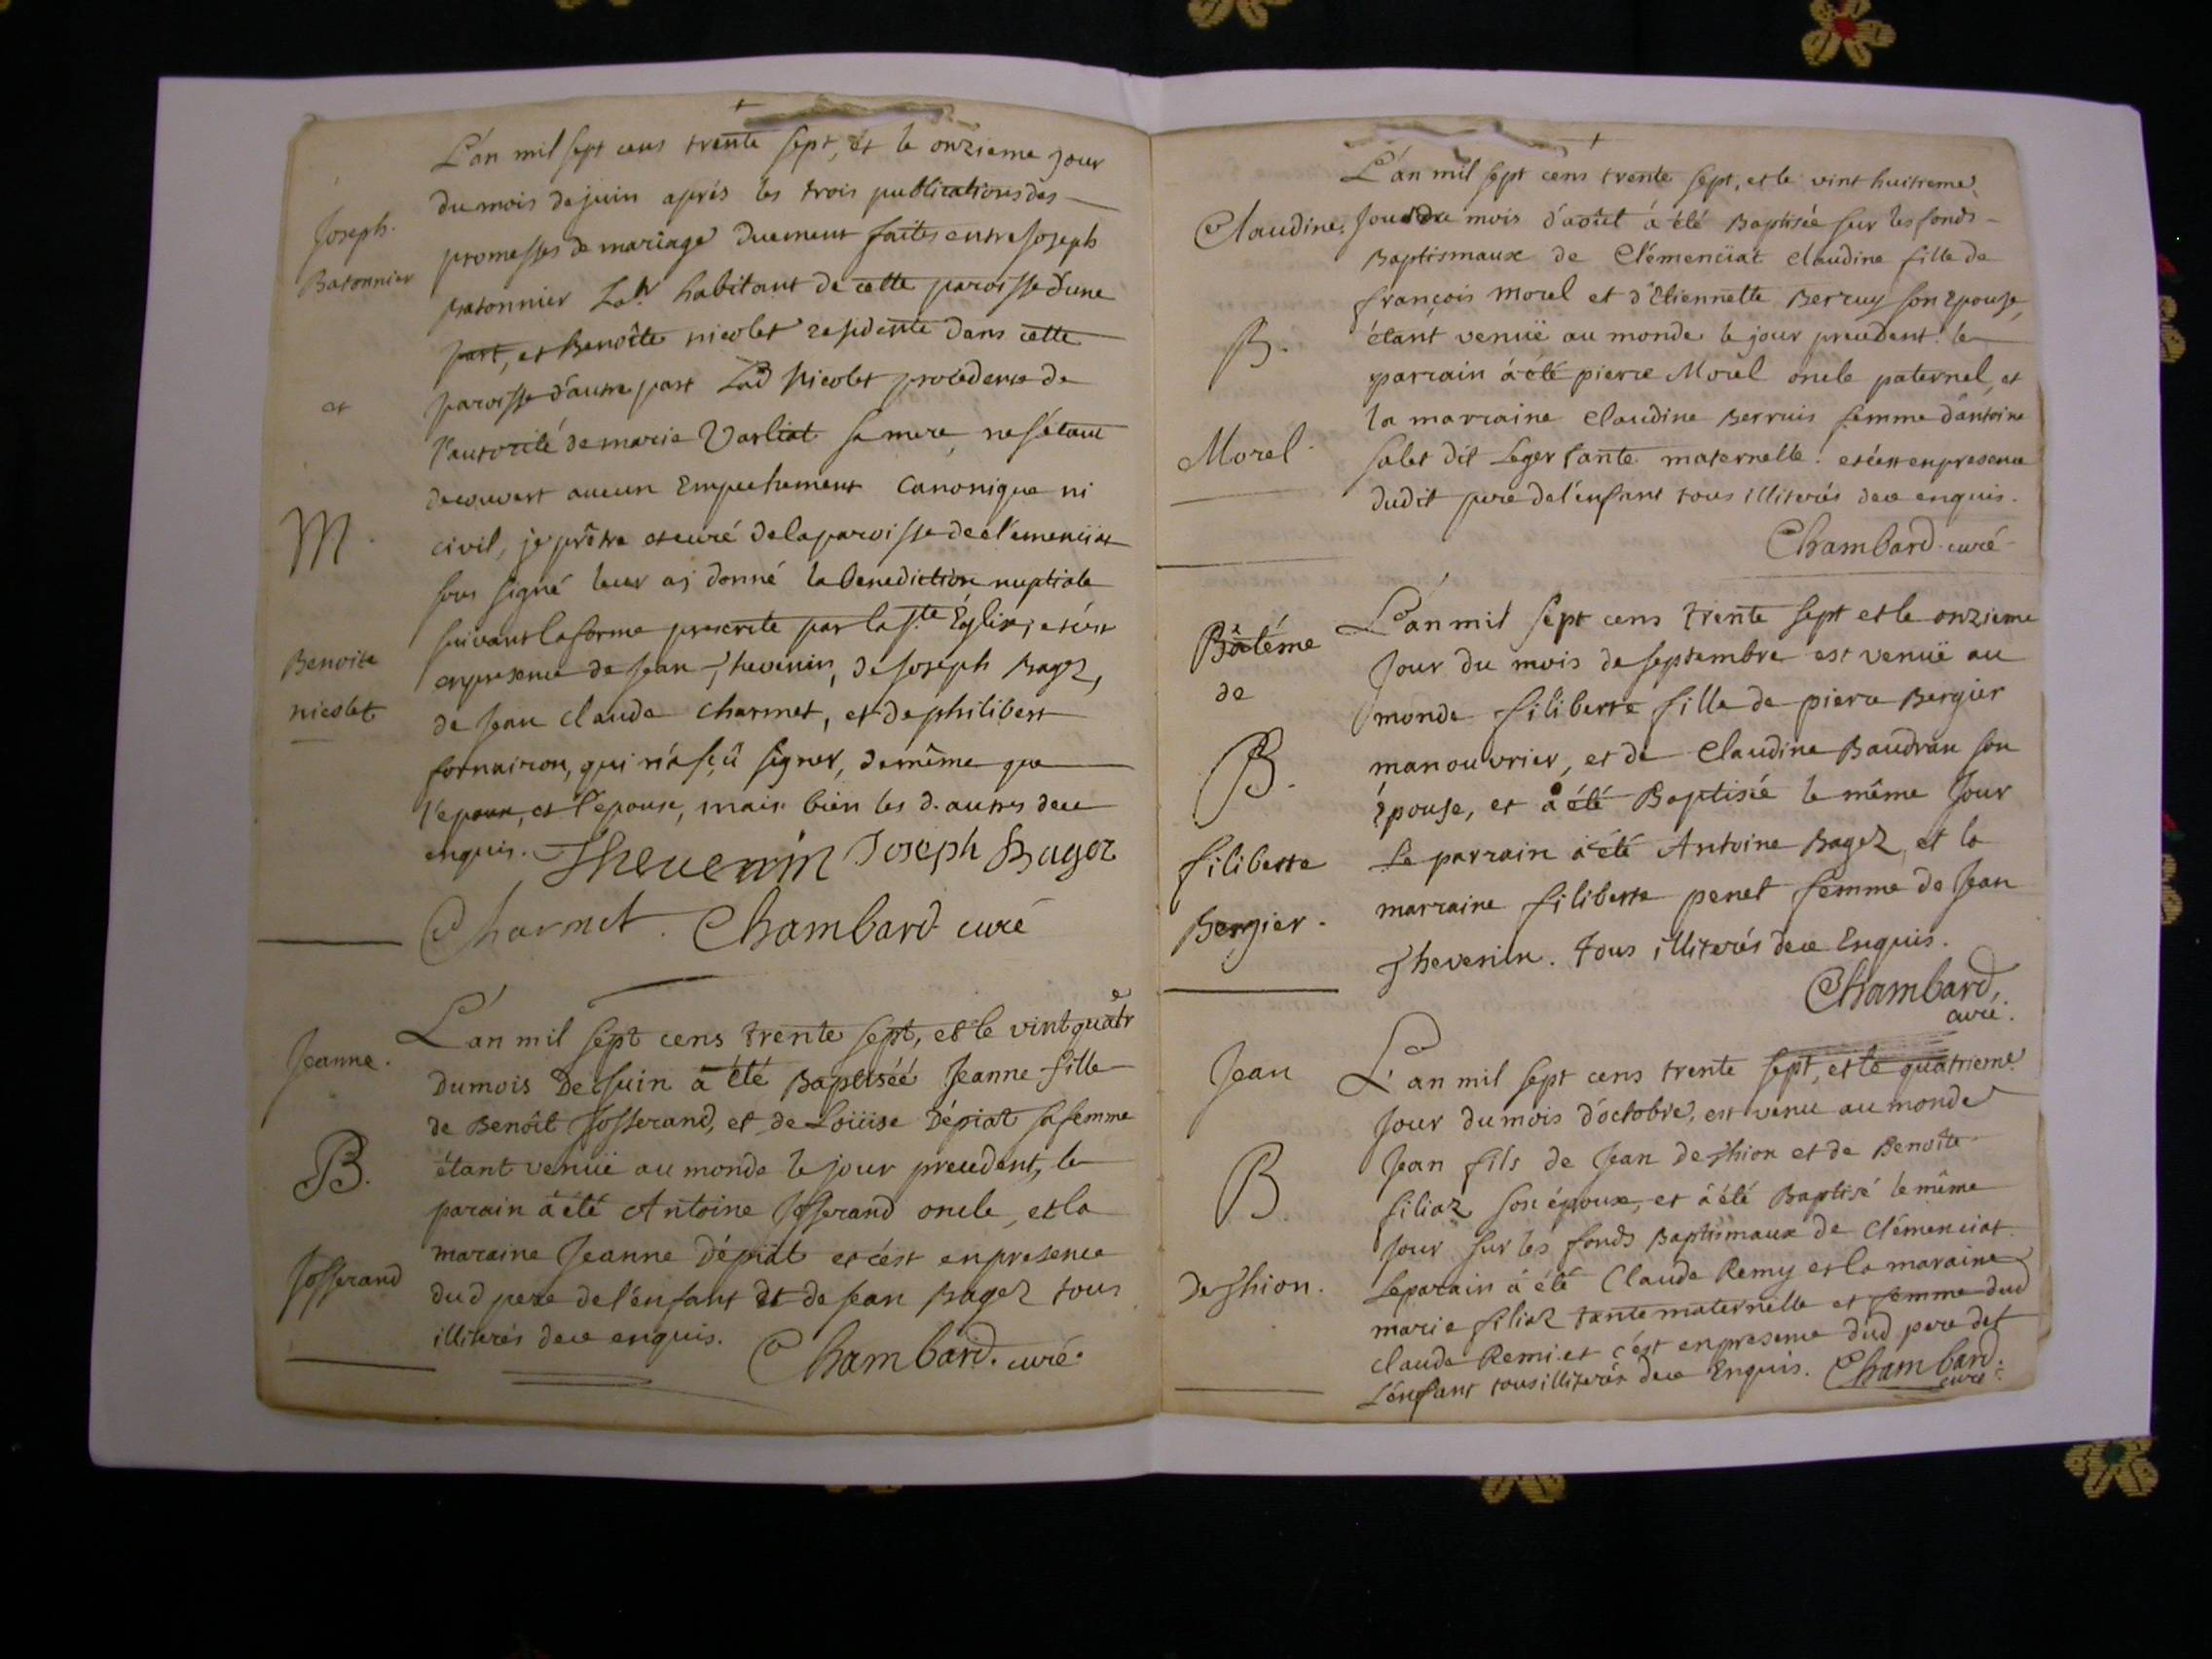 L'an mil sept cens trente sept, et le onzieme jour
du mois de juin aprés les trois publications des
Joseph.
promesses de mariage duement faites entre Joseph
Batonnier
Batonnier Lab.r habitant de cette paroisse d'une
part, et Benoîte nicolet residente dans cette
et
paroisse d'autre part Lad Nicolet procedente de
l'autorité de marie Varliat sa mere, ne s'étant
decouvert aucun Empechement Canonique ni
M.
civil, je prêtre et curé de la paroisse de clémenciat
sous signé leur aj donné la benediction nuptiale
suivant la forme prescrite par la s.te Église, et c'est
Benoite
en presence de Jean Thevenin, de Joseph Bagez,
nicolet
de Jean Claude charmet, et de philibert
fornairon, qui n'a sçû signer, de même que
l'epoux, et l'epouse, mais bien les d. autres dece
enquis. Thevenin Joseph Bagez
Charmet. Chambard curé
L'an mil sept cens trente sept, et le vint quatre
Jeanne.
du mois de Juin à été Baptisée Jeanne fille
de Benoît Josserand, et de Loüise Dépiat sa femme
B.
étant venuë au monde le jour precedent, le
parain à été Antoine Josserand oncle, et la
Josserand
maraine Jeanne Dépiat et c'est en presence
dud pere de l'enfant et de Jean Bagez tous
illiterés dece enquis. Chambard. curé.
L'an mil sept cens trente sept, et le vint huitieme
Claudine.
Jour du mois d'août à été Baptisée sur les fonds
Baptismaux de Clémenciat claudine fille de
françois Morel et d'Etiennette Berruy son Epouse,
B.
étant venuë au monde le jour precedent. le
parrain à été pierre Morel oncle paternel, et
la marraine Claudine Berruis femme d'antoine
Morel.
salet dit Leger tante maternelle. et c'est en presence
dudit pere de l'enfant tous illiterés dece enquis.
Chambard. curé
L'an mil sept cens trente sept et le onzieme
Bâtéme
de
Jour du mois de septembre est venuë au
monde filiberte fille de piere Bergier
B.
manouvrier, et de Claudine Baudran son
Épouse, et à été Baptisée le même Jour
filiberte
Le parrain à été Antoine Bagez, et la
Bergier.
marraine filiberte penet femme de Jean
Thevenin. Tous illiterés dece Enquis.
Chambard,
curé.
Jean
L'an mil sept cens trente sept, et le quatrieme
Jour du mois d'octobre, est venu au monde
Jean fils de Jean deThion et de Benoîte
B
filiaz son épouse, et à été Baptisé le même
Jour sur les fonds Baptismaux de Clémenciat.
deThion.
Le parain à été Claude Remy et la maraine
marie filiaz tante maternelle et femme dud
claude Remi. et c'est en presence dud pere det
L'énfant tous illiterés dece Enquis. Chambard.
curé.